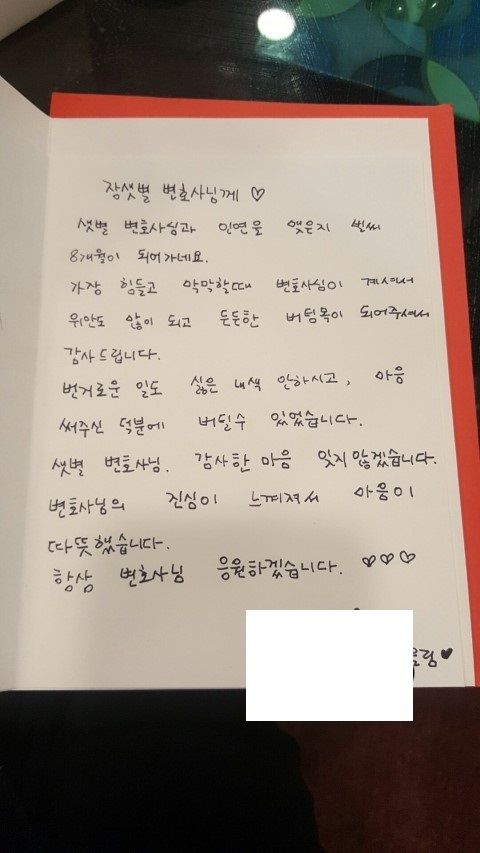 장샛별 변호사님께 ♡
샛별 변호사님과 인연을 맺은지 벌써
8개월이 되어가네요.
가장 힘들고 막막할때 변호사님이 계셔서
위안도 많이 되고 든든한 버팀목이 되어주셔서
감사드립니다.
번거로운 일도 싫은 내색 안하시고, 마음
써주신 덕분에 버틸수 있었습니다.
샛별 변호사님. 감사한 마음 잊지 않겠습니다.
변호사님의 진심이 느껴져서 마음이
따뜻했습니다.
항상 변호사님 응원하겠습니다. ♡♡♡
올림 ♥